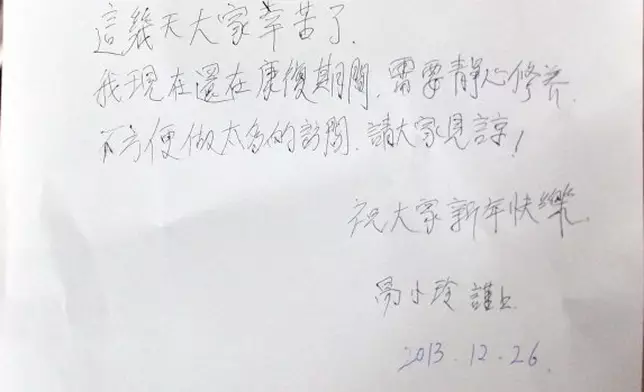 這幾天大家辛苦了.
我現在還在康復期間,需要靜心修养.
不方便做太多的訪問.請大家見諒!
祝大家新年快樂.
易小玲 謹上
2013.12.26.